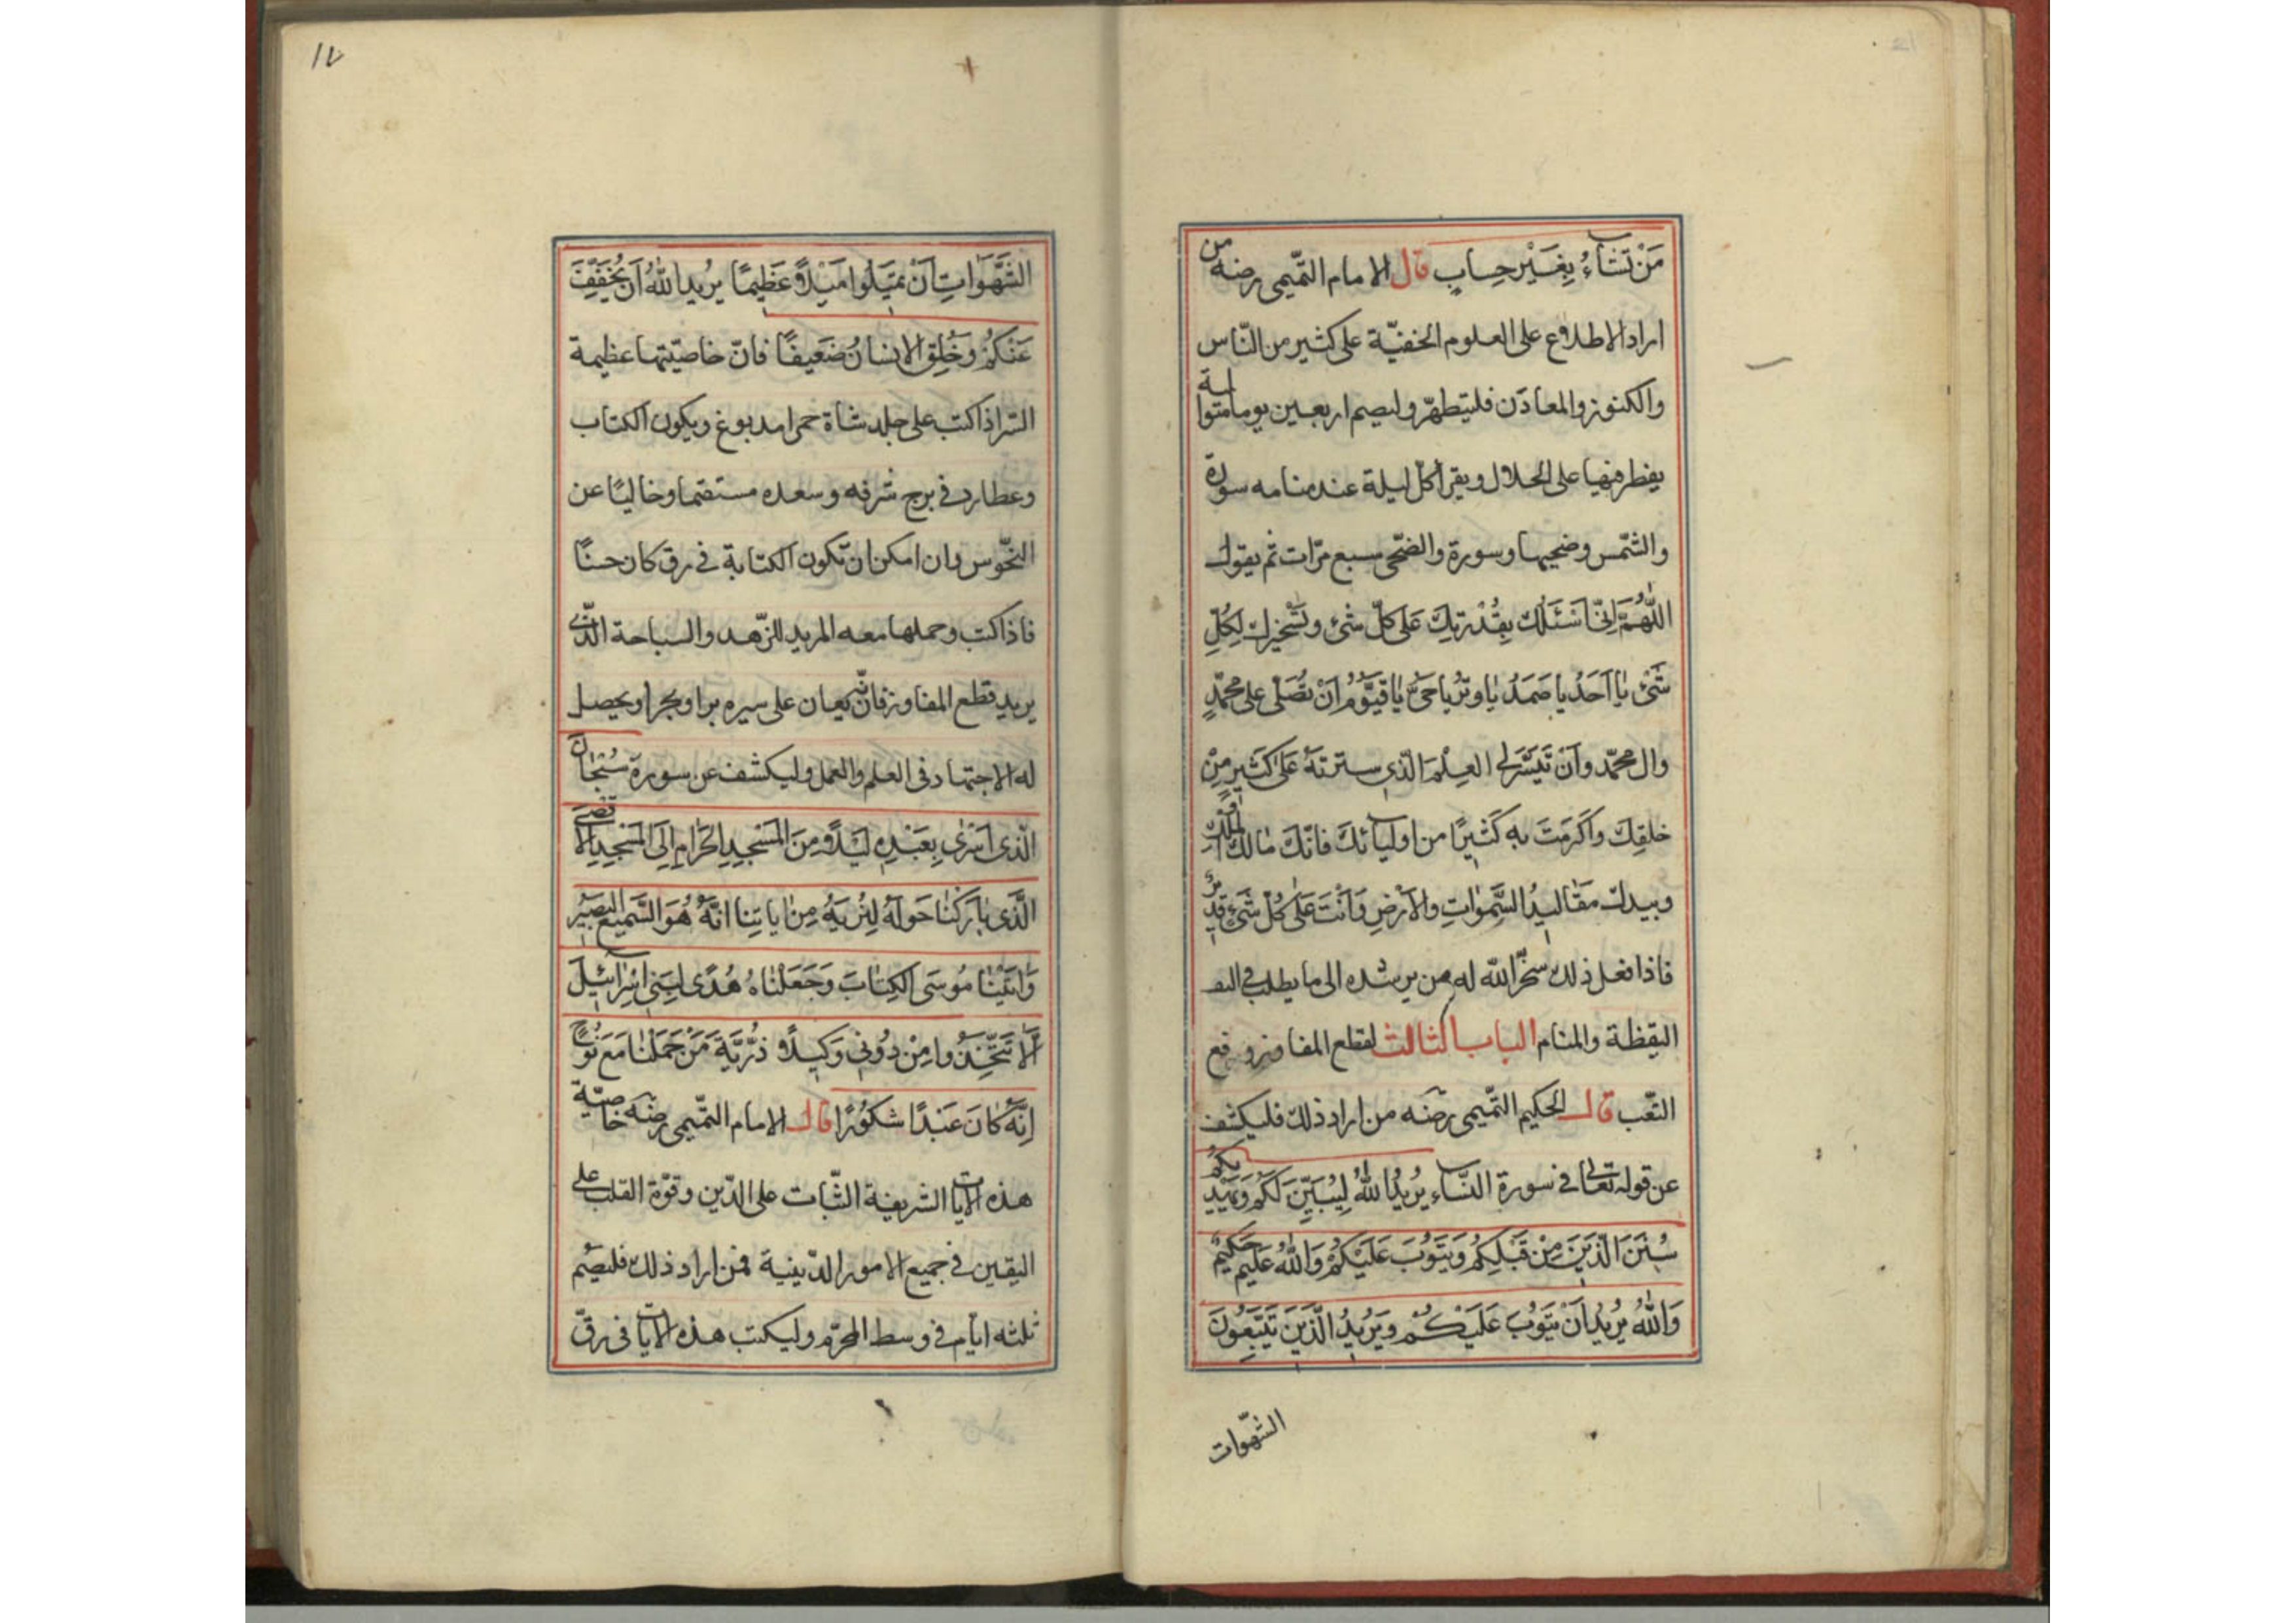 مَنْ تَشَاءُ بِغَيْرِ حِسابٍ قال الامام التّميمى رضه من
اراد الاطلاع على العلوم الخفيّة على كثير من النّاس
والكنوز والمعادن فليتطهّر وليصم اربعين يوما متوالية
يفطر فيها على الحلال ويقرأ كلّ ليلة عند منامه سورة
والشّمس وضحيها وسورة والضّحى سبع مرّات ثم يقول
اَللّٰهُمَّ اِنّى اَسْئَلُكَ بِقُدْرَتِكَ عَلى كلّ شئ وتَسْخيرك لِكُلِّ
شَئ يٰا اَحَدُ يا صَمَدُ يٰا وِتْرُ يا حَىُّ يٰا قَيُّوْمُ اَنْ تُصَلّى على محمّدٍ
وال محمّد وَاَنْ تَيَسَّرَ لى العِلْمَ الّذى سترته عَلى كثيرٍ مِنْ
خلقِكَ واَكرَمتَ به كَثيرًا من اوليائكَ فانّكَ مٰالك الملك
وبيدك مَقٰاليدُ السَّمٰوٰاتِ والاَرْضِ وَاَنْتَ عَلٰى كُلّ شَئٍ قديرٌ
فاذا فعل ذلك سخّر الله له من يرشده الى ما يطلب فى اليقـ
اليقظة والمنام الباب الثالث لقطع المفاوز ورفع
التّعب قال الحكيم التّميمى رضه من اراد ذلك فليكشف
عن قوله تعالى فى سورة النّساء يُريدُ اللهُ لِيُبَيِّنَ لَكُمْ وَيَهْدِيَكُمْ
سُنَنَ الّذينَ مِنْ قَبْلِكُمْ وَيَتُوْبَ عَلَيْكُمْ وَاللهُ عَليم حَكيمٌ
وَاللهُ يُريدُ اَنْ يَتُوْبَ عَلَيْكُمْ وَيُرِيْدُ الَّذينَ يَتَّبِعُوْنَ
الشّهوات
١٧
الشَّهَوَاتِ اَنْ تَميْلُوا مَيْلاً عَظِيمًا يُريد اللهُ اَنْ يُخَفِّفَ
عَنْكُمْ وَخُلِقَ الانسانُ ضَعيفًا فانّ خاصّيّتها عظيمة
السّر اذا كتب على جلد شاة حمرا مدبوغ ويكون الكتاب
وعطارد فى برج شرفه وسعده مستقيما وخاليًا عن
النّحوس وان امكن ان تكون الكتابة فى رق كان حسنًا
فاذا كتب وحملها معه المريد للزّهد والسياحة الّذى
يريد قطع المفاوز فانّه يعان على سيره برا وبحرا ويحصل
له الاجتهاد فى العلم والعمل وليكشف عن سورة سُبْحٰانَ
الّذى اَسْرٰى بِعَبْدِه لَيْلاً مِنَ الْمَسْجِدِ الْحَرٰامِ اِلَى الْمَسْجِدِ الاَقْصَى
الَّذى بٰارَكْنٰا حَوْلَهُ لِنُرِيَهُ مِنْ اٰيٰاتِنٰا اِنَّهُ هُوَ السَّميعُ البَصيْرُ
وَاٰتَيْنٰا مُوْسَى الكِتٰابَ وَجَعَلْنٰاهُ هُدًى لِبَنِى اِسْرٰائيْلَ
اَلاَّ تَتَّخِذُوا مِنْ دُوْنى وَكيلاً ذُرِّيَّةَ مَنْ حَمَلْنٰا مَعَ نُوْحٍ
اِنَّهُ كَانَ عَبْدًا شَكُوْرًا قال الامام التّميمى رضه خاصّيّة
هذه الايات الشريفة الثّبات على الدّين وقوّة القلب على
اليقين فى جميع الامور الدّينية فمن اراد ذلك فليصُم
ثلثه ايّام فى وسط المحرّم وليكتب هذه الايات فى رقّ